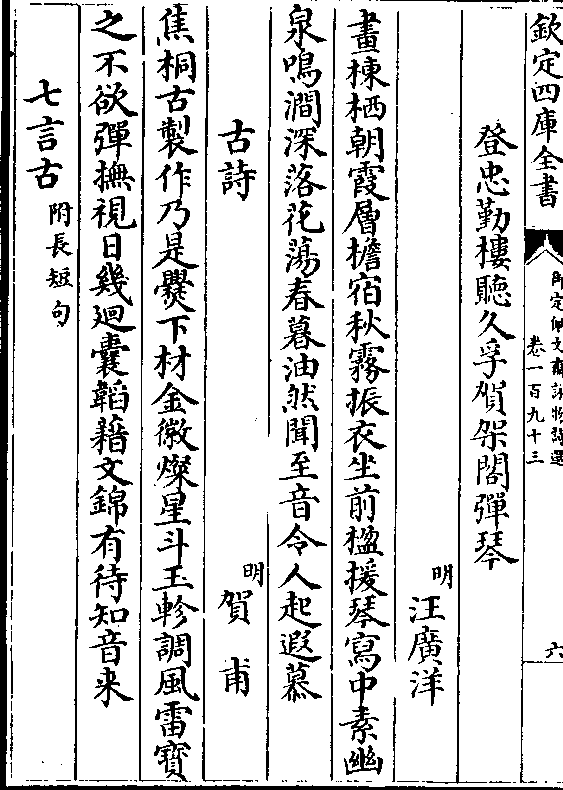 欽定四庫全書
御定佩文齋詠物詩選
卷一百九十三
六
登忠勤樓聽久孚賀架閣彈琴
明 汪廣洋
畫棟栖朝霞層檐宿秋霧振衣坐前楹援琴寫中素幽
泉鳴澗深落花蕩春暮油然聞至音令人起遐慕
古詩
明 賀甫
焦桐古製作乃是爨下材金徽燦星斗玉軫調風雷寶
之不欲彈撫視日幾廻囊韜藉文錦有待知音来
七言古 附長短句